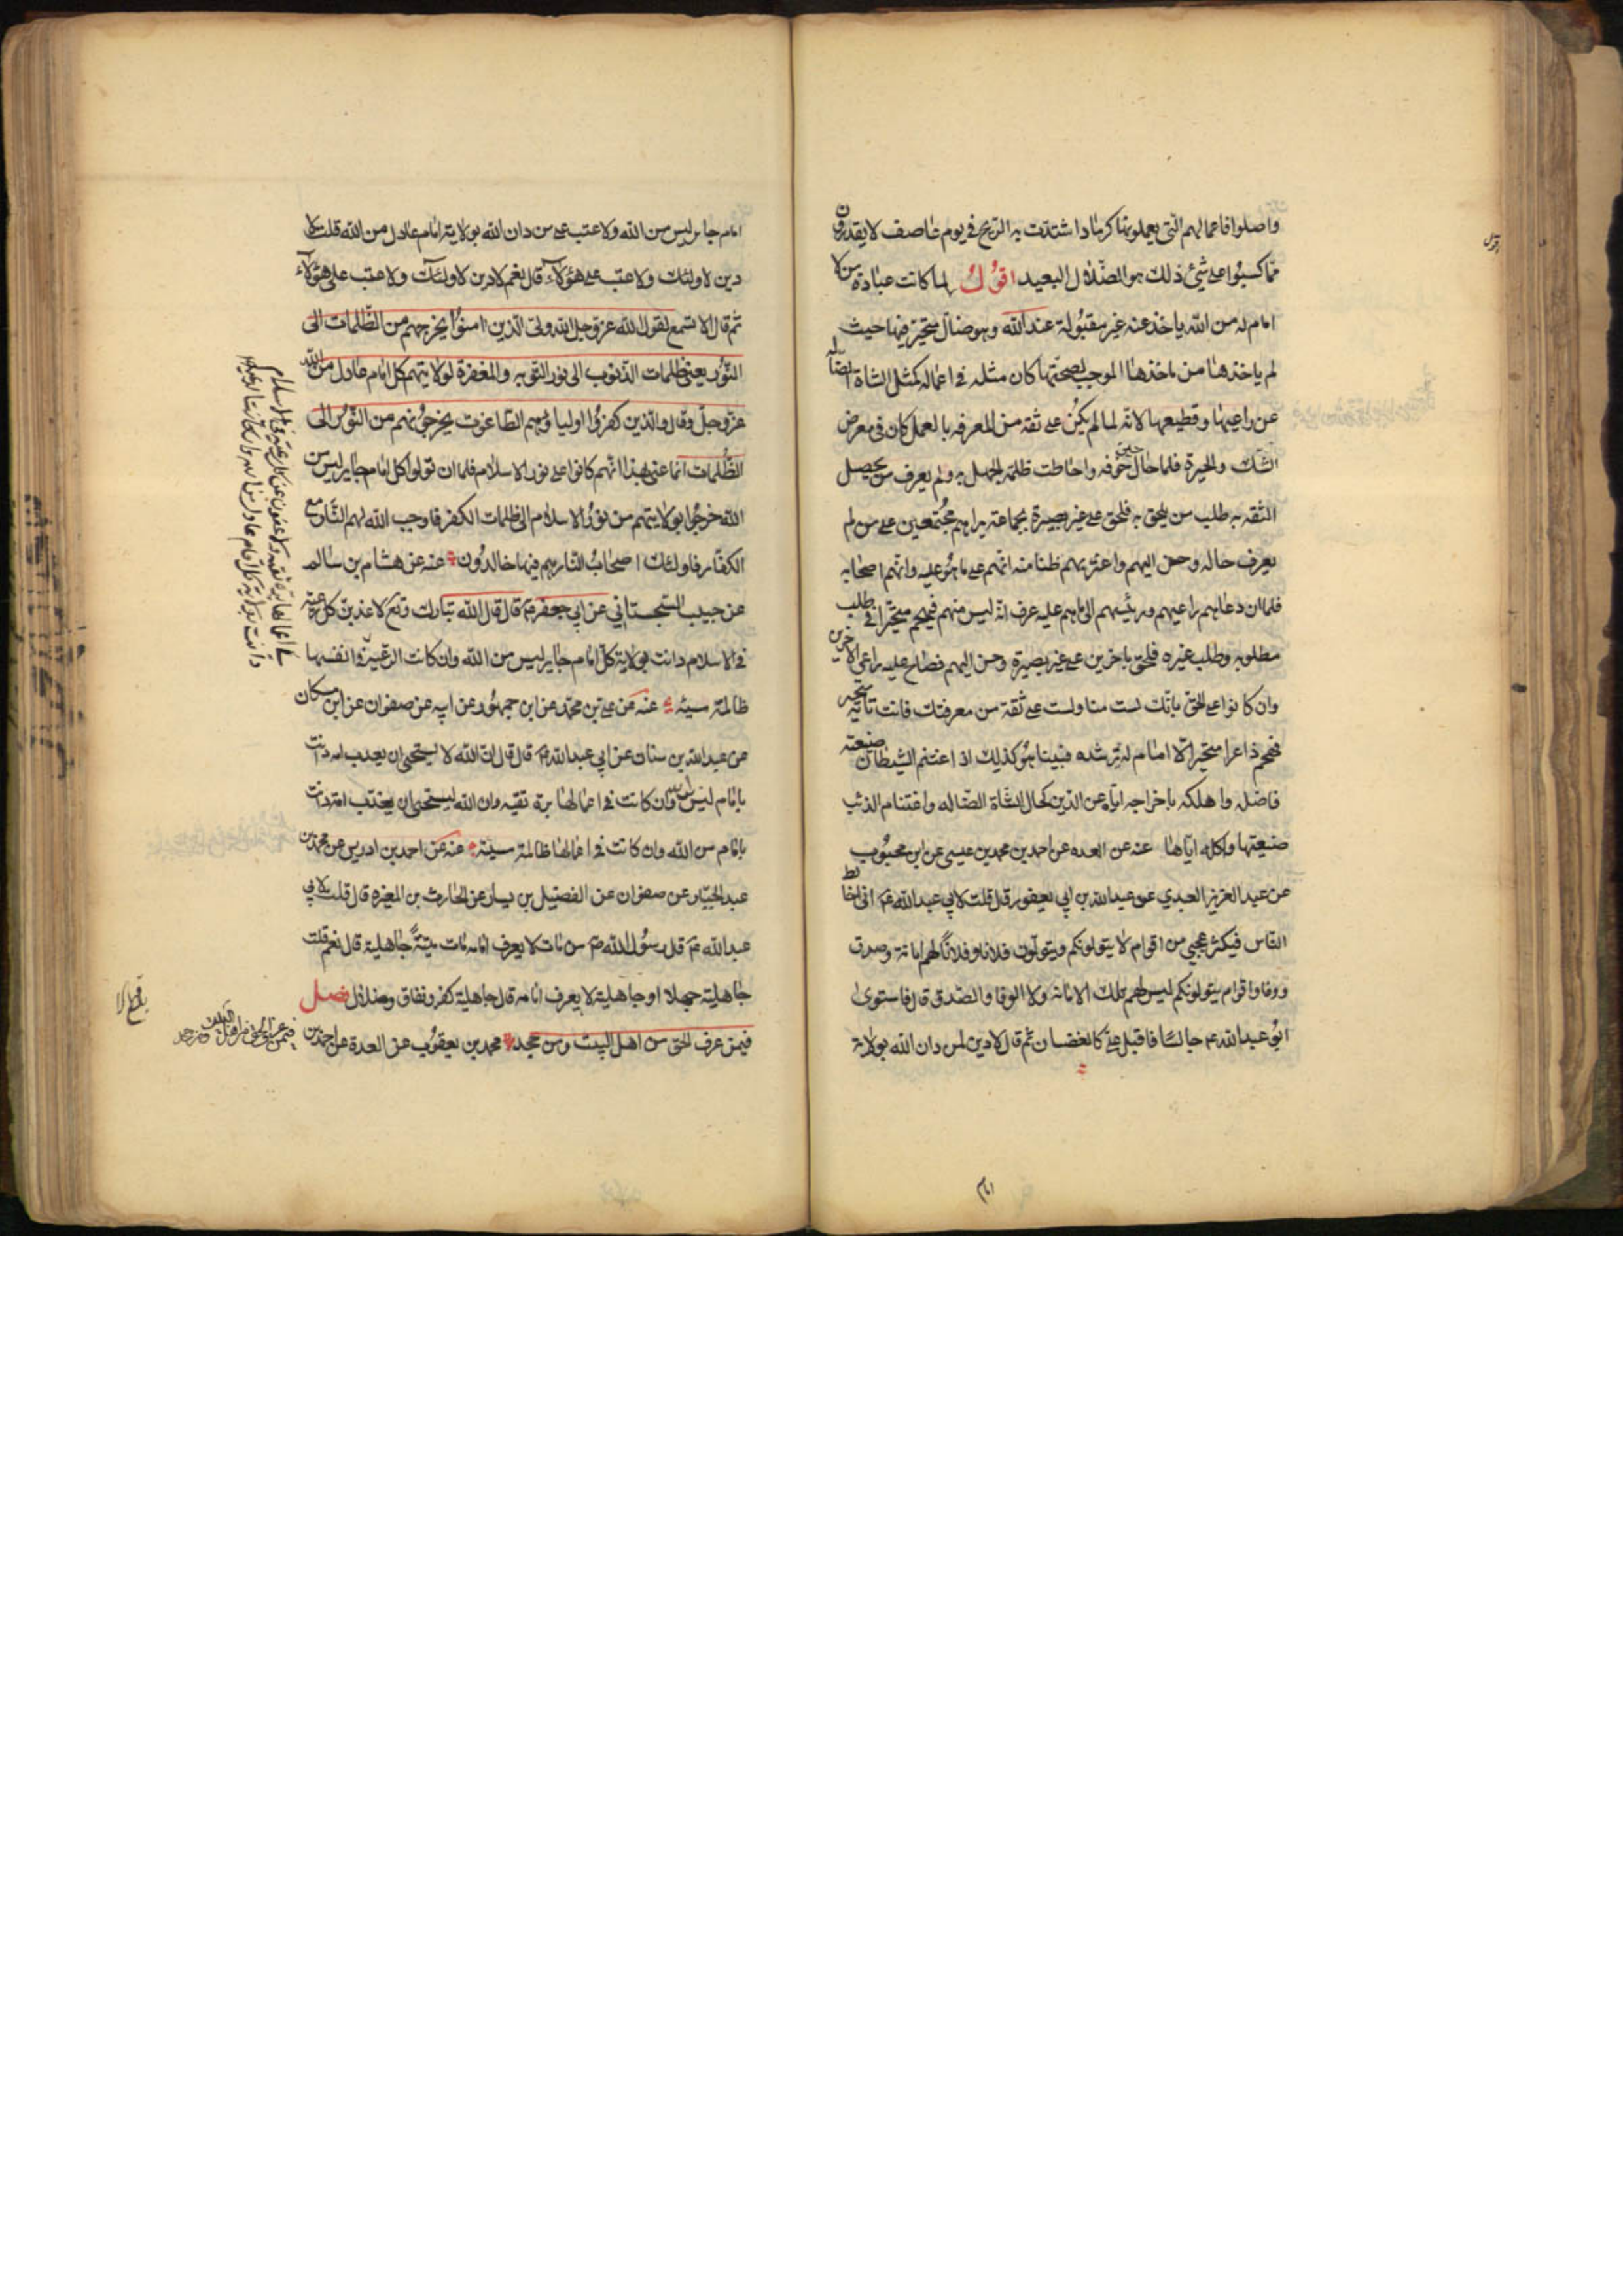 واضلوا فاعمالهم التي يعملونها كرماد اشتدت به الريح في يوم عاصف لا يقدرون
مما كسبوا على شيء ذلك هو الضلال البعيد اقول لما كانت عبادة من لا
امام له من الله ياخذ عنه غير مقبولة عند الله وهو ضال متحير فيها حيث
لم ياخذها من ماخذها الموجب لصحتها كان مثله في اعماله كمثل الشاة الضالة
عن راعيها وقطيعها لانه لما لم يكن على ثقه من المعرفه بالعمل كان في معرض
الشك والحيرة فلما حال خوفه واحاطت ظلمة الجهل به ولم يعرف من يحصل
الثقه به طلب من يلحق به فلحق على غير بصيرة بجماعة يراهم مجتمعين على من لم
يعرف حاله وحن اليهم واغتر بهم ظنا منه انهم على ما هو عليه وانهم اصحابه
فلما ان دعاهم راعيهم ورئيسهم الى ما هم عليه عرف انه ليس منهم فيهجم متحيرا في طلب
مطلوبه وطلب غيره فلحق باخرين على غير بصيرة وحن اليهم فصاح عليه راعي الاخرين
وان كانوا على الحق بانك لست منا ولست على ثقة من معرفتك فانت تائه متحير
فهجم ذاعرا متحيرا لا امام له يرشده فبينا هو كذلك اذ اغتنم الشيطان ضيعته
فاضله واهلكه باخراجه اياه عن الدين كحال الشاة الضاله واغتنام الذئب
ضيعتها واكله اياها عنه عن العده عن احمد بن محمد بن عيسى عن ابن محبوب
عن عبد العزيز العبدي عن عبد الله بن ابي يعفور قال قلت لابي عبد الله ع اني اخالط
الناس فيكثر عجبي من اقوام لا يتولونكم ويتولون فلانا وفلانا لهم امانة وصدق
ووفا واقوام يتولونكم ليس لهم تلك الامانه ولا الوفا والصدق قال فاستوى
ابو عبد الله ع جالسا فاقبل علي كالغضبان ثم قال لا دين لمن دان الله بولاية
امام
امام جاير ليس من الله ولا عتب على من دان الله بولاية امام عادل من الله قلت لا
دين لاولئك ولا عتب على هؤلاء قال نعم لا دين لاولئك ولا عتب على هؤلاء
ثم قال الا تسمع لقول الله عز وجل الله ولي الذين امنوا يخرجهم من الظلمات الى
النور يعني ظلمات الذنوب الى نور التوبه والمغفرة لولايتهم كل امام عادل من الله
عز وجل وقال والذين كفروا اولياؤهم الطاغوت يخرجونهم من النور الى
الظلمات انما عنى بهذا انهم كانوا على نور الاسلام فلما ان تولوا كل امام جاير ليس من
الله خرجوا بولايتهم من نور الاسلام الى ظلمات الكفر فاوجب الله لهم النار مع
الكفار فاولئك اصحاب النار هم فيها خالدون عنه عن هشام بن سالم
عن حبيب السجستاني عن ابي جعفر ع قال قال الله تبارك وتع لاعذبن كل رعية
في الاسلام دانت بولاية كل امام جاير ليس من الله وان كانت الرعية في انفسها
ظالمة سيئه عنه عن علي بن محمد عن ابن جمهور عن ابيه عن صفوان عن ابن مسكان
عن عبد الله بن سنان عن ابي عبد الله ع قال قال ان الله لا يستحيي ان يعذب امه دانت
بامام ليس من الله وان كانت في اعمالها برة تقيه وان الله ليستحيي ان يعذب امة دانت
بامام من الله وان كانت في اعمالها ظالمة سيئة عنه عن احمد بن ادريس عن محمد بن
عبد الجبار عن صفوان عن الفضيل بن يسار عن الحارث بن المغيره قال قلت لابي
عبد الله ع قال رسول الله ص من مات لا يعرف امامه مات ميتة جاهلية قال نعم قلت
جاهلية جهلا او جاهلية لا يعرف امامه قال جاهلية كفر ونفاق وضلال فصل
فيمن عرف الحق من اهل البيت ومن جحد محمد بن يعقوب عن العدة عن احمد بن
فيمن عرف الحق من اهل البيت ومن جحد